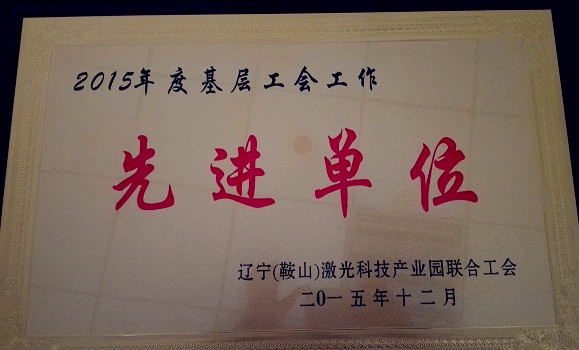 2015年度基层工会工作
先进单位
辽宁(鞍山)激光科技产业园联合工会
二0一五年十二月